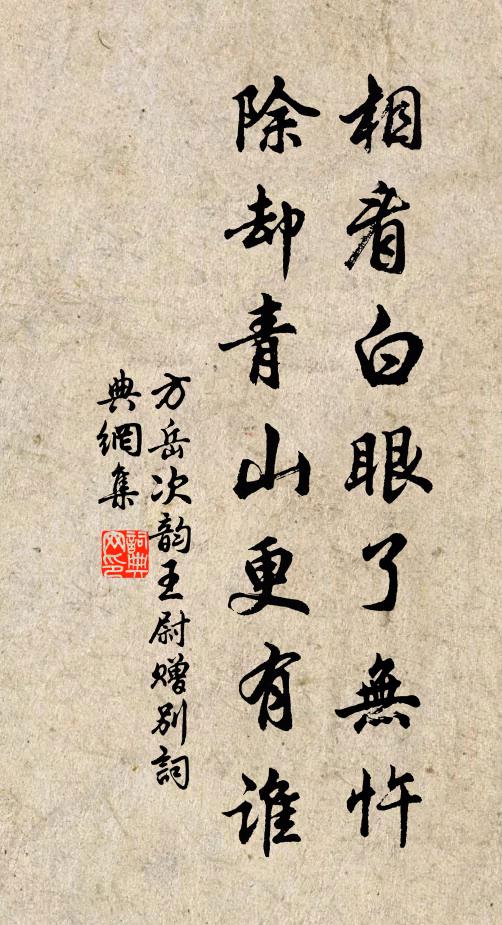 相看白眼了無忤
除却青山更有誰
方岳次韵王尉贈別詞
典網集
詞典
网印